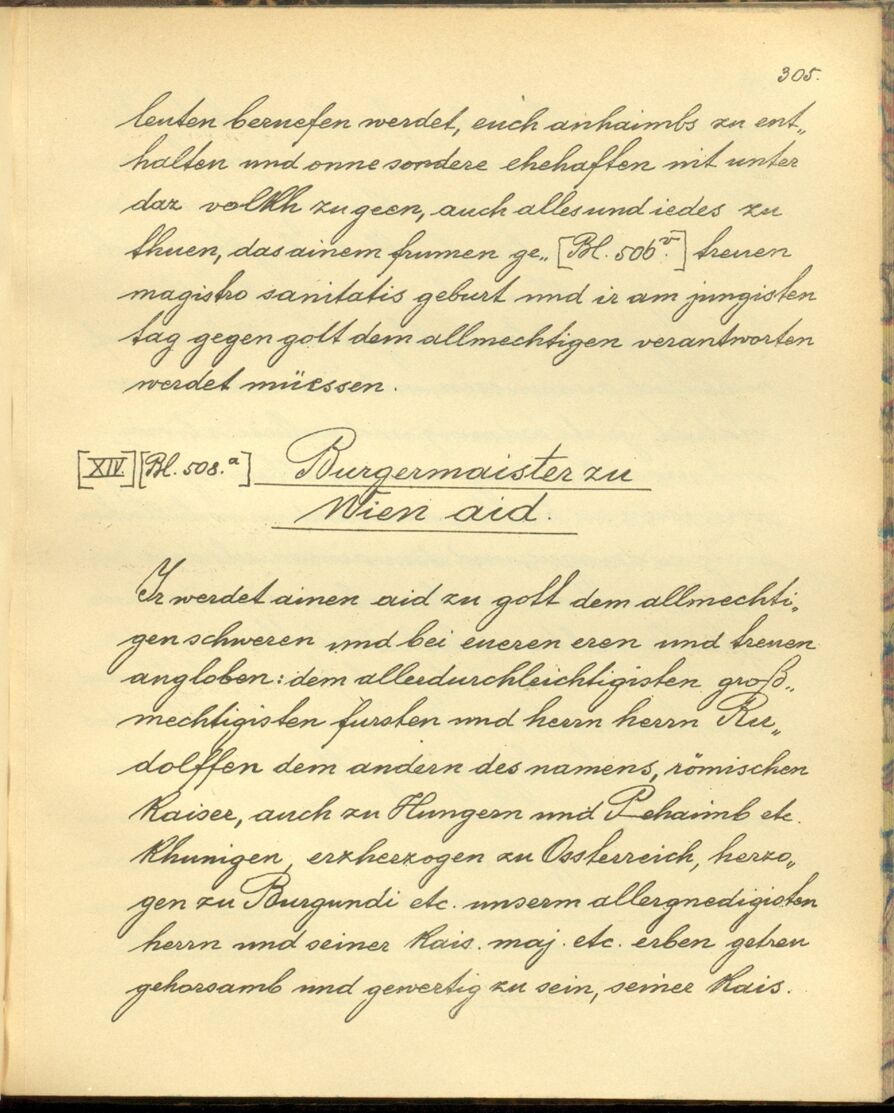 305.
leuten beruefen werdet, euch anhaimbs zu ent„
halten und onne sondere ehehaften nit unter
daz volkh zu geen, auch alles und iedes zu
thuen, das ainem frumen ge„ [Bl. 506ᵛ.] treuen
magistro sanitatis geburt und ir am jungisten
tag gegen gott dem allmechtigen verantworten
werdet müessen.
[XIV.] [Bl. 508.ᵃ] Burgermaister zu
Wien aid.
Ir werdet ainen aid zu gott dem allmechti„
gen schweren und bei eueren eren und treuen
angloben: dem allerdurchleichtigisten groß„
mechtigisten fursten und herrn herrn Ru„
dolffen dem andern des namens, römischen
kaiser, auch zu Hungern und Pehaimb etc.
khunigen, erzherzogen zu Ossterreich, herzo„
gen zu Burgundi etc. unserm allergnedigisten
herrn und seiner kais. maj. etc. erben getreu
gehorsamb und gewertig zu sein, seiner kais.